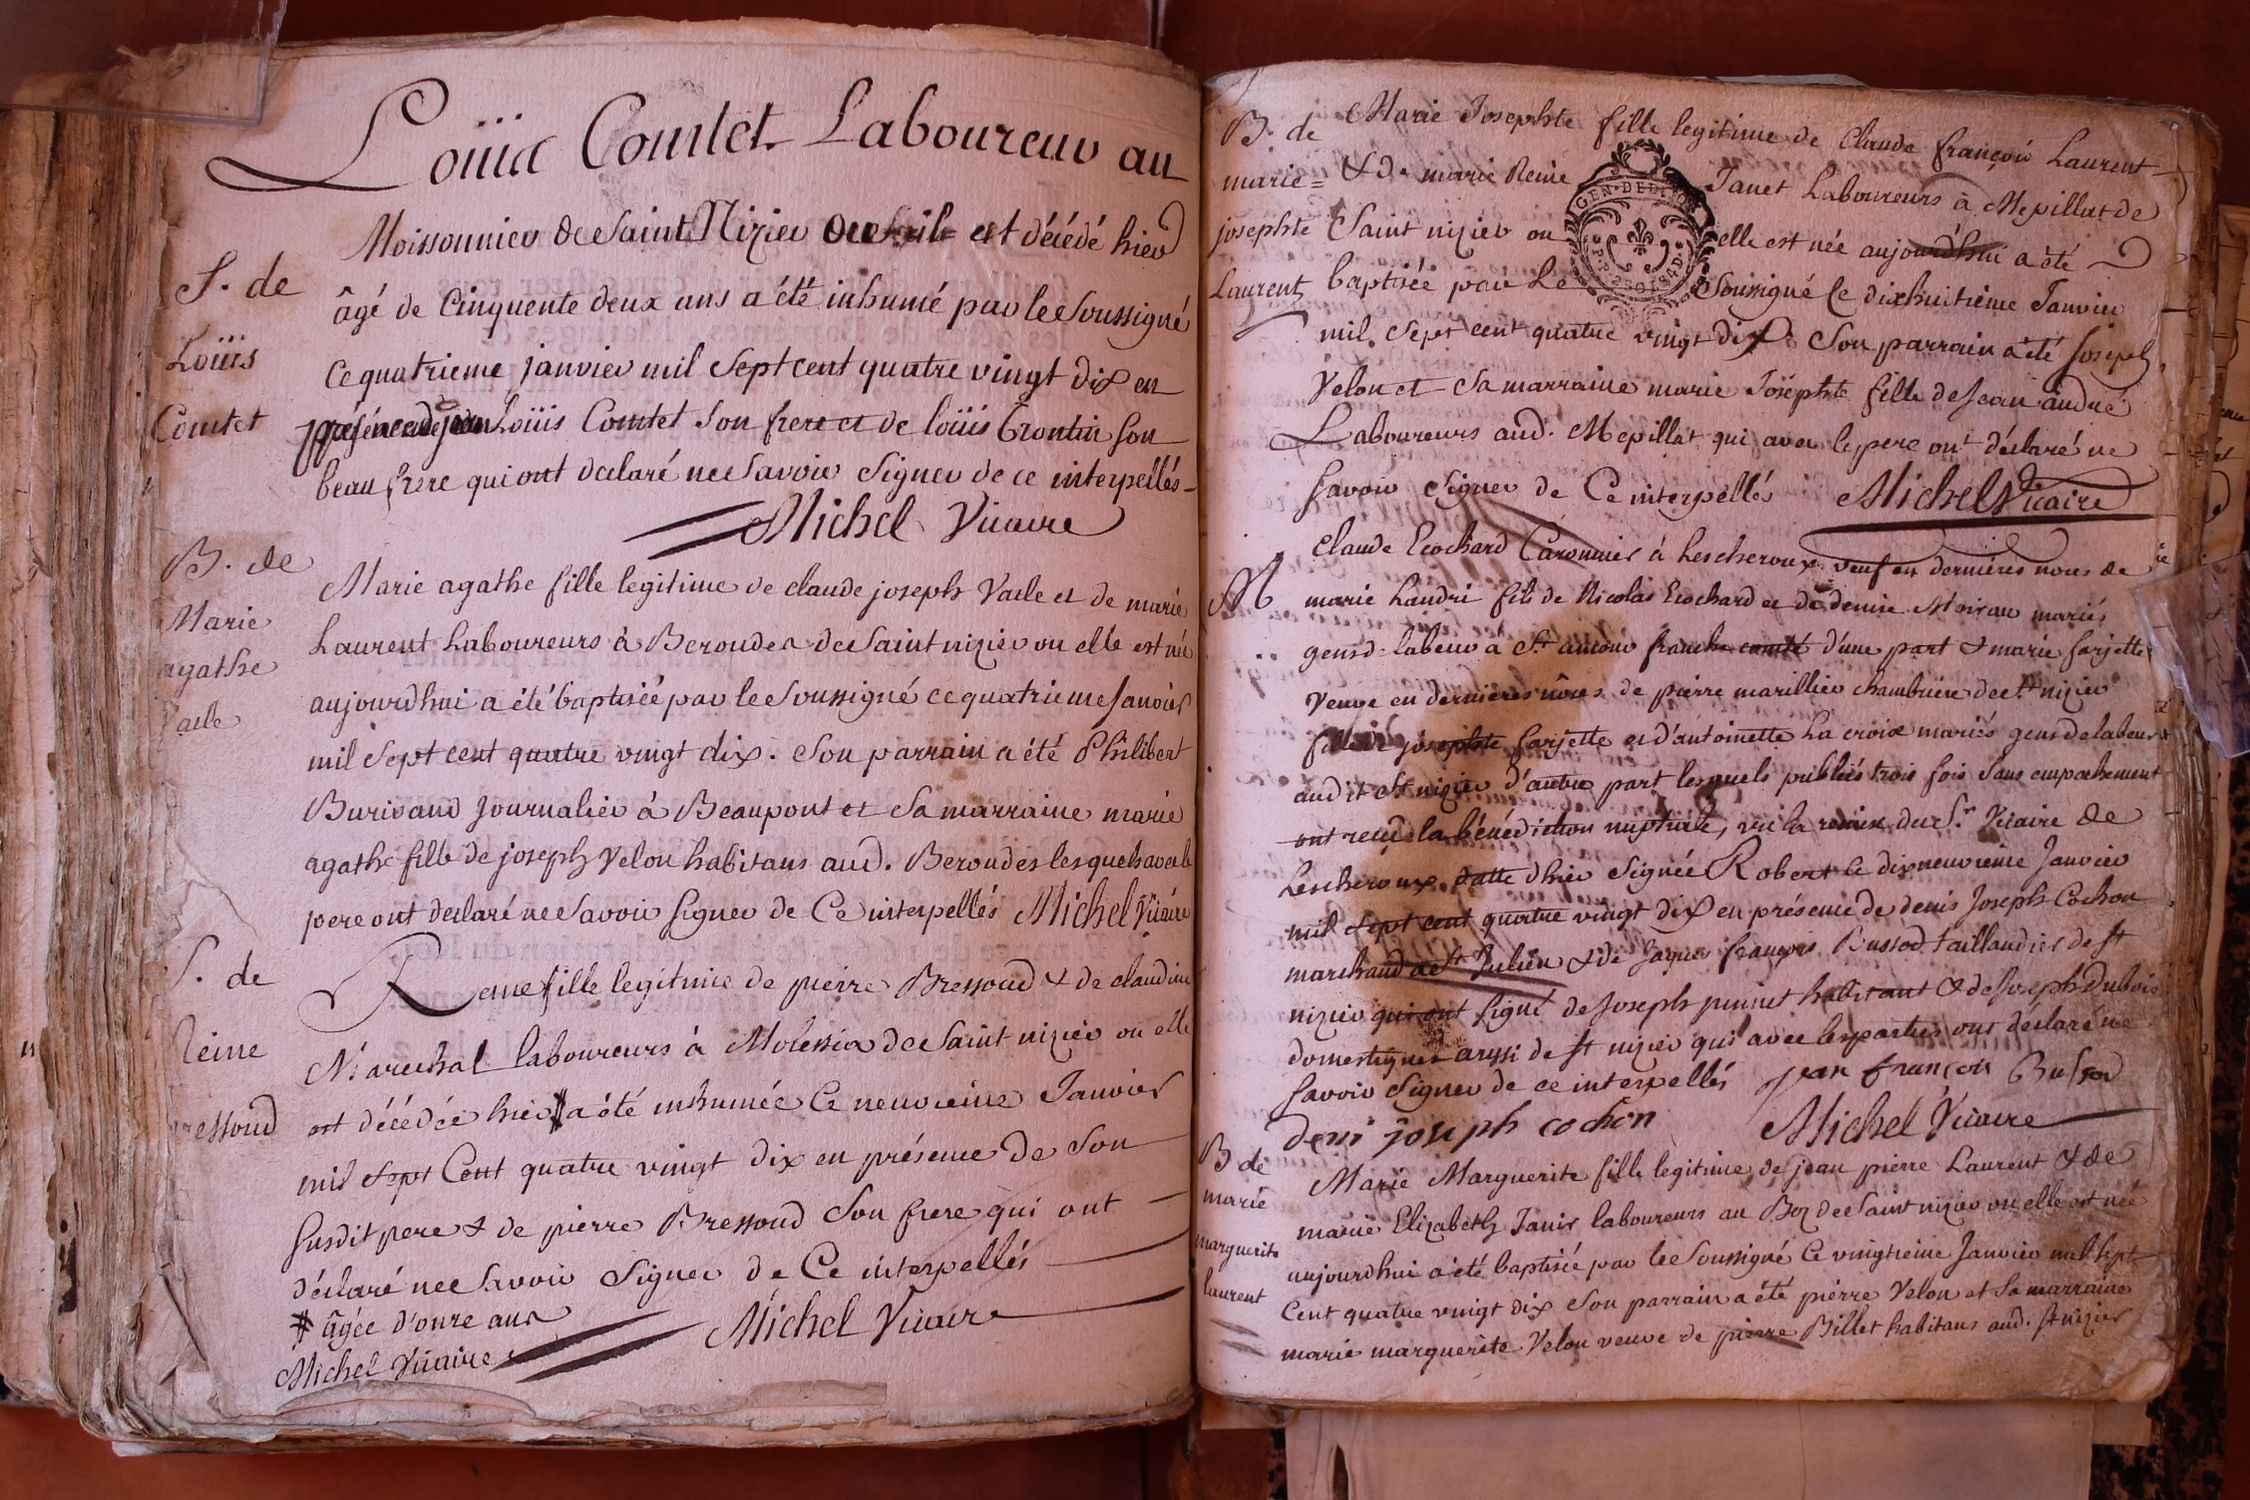 Loüis Comtet Laboureur au
Moissonnier de Saint Nizier est décédé hier
S. de
âgé de Cinquente deux ans a été inhumé par le Soussigné
Loüis
Ce quatrieme janvier mil Sept cent quatre vingt dix en
Comtet
présence de jean Loüis Comtet Son frere et de loüis Son
beau frere qui ont declaré ne Savoir Signer de ce interpellés
Michel Vicaire
B. de
Marie agathe fille legitime de claude joseph Vaile et de marie
Marie
Laurent Laboureurs à Berondes de Saint nizier ou elle est née
agathe
aujourdhui a été baptisée par le Soussigné ce quatrieme Janvier
Vaile
mil Sept cent quatre vingt dix. Son parrain a été Philibert
Burivand journalier à Beaupont et Sa marraine marie
agathe fille de joseph Velon habitans aud. Berondes lesquels avec le
pere ont déclaré ne Savoir Signer de Ce interpellés Michel Vicaire
S. de
Reine fille legitime de pierre Bressoud & de claudine
Reine
Maréchal laboureurs à de Saint nizier ou elle
ressoud
est décédée hier # a été inhumée Ce neuvieme Janvier
mil Sept Cent quatre vingt dix en présence de Son
Susdit pere & de pierre Bressoud Son frere qui ont
déclaré ne Savoir Signer de Ce interpellés
# âgée d'onze ans
Michel Vicaire
Michel Vicaire
B. de
Marie Josephte fille legitime de Claude françois Laurent
marie=
& de marie Reine Janet Laboureurs à Mepillat de
josephte
Saint nizier ou elle est née aujourdhui a été
Laurent
baptisée par Le Soussigné le dixhuitième Janvier
GEN. DE DIJON
mil Sept cent quatre vingt dix Son parrain a été joseph
Velon et Sa marraine marie Josephte fille de Jean andré
Laboureurs aud. Mepillat qui avec le pere ont déclaré ne
Savoir Signer de Ce interpellés Michel Vicaire
Claude Ecochard à Lescheroux veuf en dernieres noces de
M
marie Landri fils de Nicolas Ecochard et de denise mariés
gens de labeur à St. amour franche comté d'une part & marie farjette
Veuve en dernieres nôces de pierre marillier chambriere de St nizier
fille de josephte farjette et d'antoinette La croix mariés gens de labeur
audit St nizier d'autre part lesquels publiés trois fois Sans empechement
ont reçu la bénédiction nuptiale, vu la remise du Sr. Vicaire de
Lescheroux datte d'hier Signée Robert le dixneuvieme Janvier
mil Sept cent quatre vingt dix en présence de denis Joseph Cochon
marchand de St Julien & de Jaque françois Bussod taillandier de St
nizier qui ont Signé de Joseph habitant & de Joseph Dubois
domestiques aussi de St nizier qui avec les parties ont déclaré ne
Savoir Signer de ce interpellés jean françois Bussod
denis joseph cochon Michel Vicaire
B de
Marie Marguerite fille legitime de jean pierre Laurent & de
marie
marie Elizabeth Janin laboureurs au Boz de Saint nizier ou elle est née
marguerite
aujourdhui a été baptisée par le Soussigné Ce vingtieme Janvier mil Sept
Laurent
Cent quatre vingt dix Son parrain a été pierre Velon et Sa marraine
marie marguerite Velon veuve de pierre Billet habitans aud. St nizier